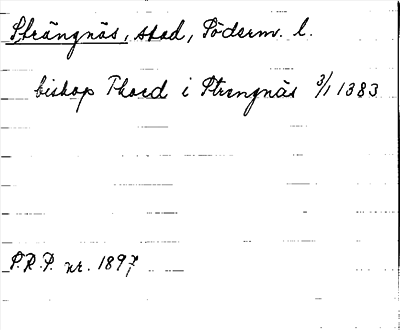 Strängnäs, stad, Söderm. l.
biskop Thord i Strengnäs 3/1 1383
S.R.P. nr. 1897